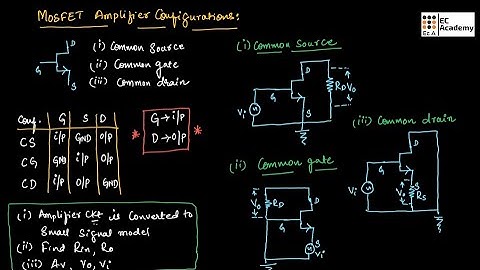 MOSFET Amplifier Configurations:
EC Academy
EC.A
D
G
S
(i) Common Source
(ii) Common gate
(iii) Common drain
Conf. G S D
CS i/p GND o/p
CG GND i/p o/p
CD i/p o/p GND
* G→i/p *
D→o/p
(i) Amplifier Ckt is Converted to
Small Signal model
(ii) Find Rin, Ro
(iii) Av, Vo, Vi
(i) Common Source
D
G
S
RD Vo
Vi
(ii) Common gate
Vo RD
D
G
S
Vi
(iii) Common drain
D
G
S
Vi
Vo RS